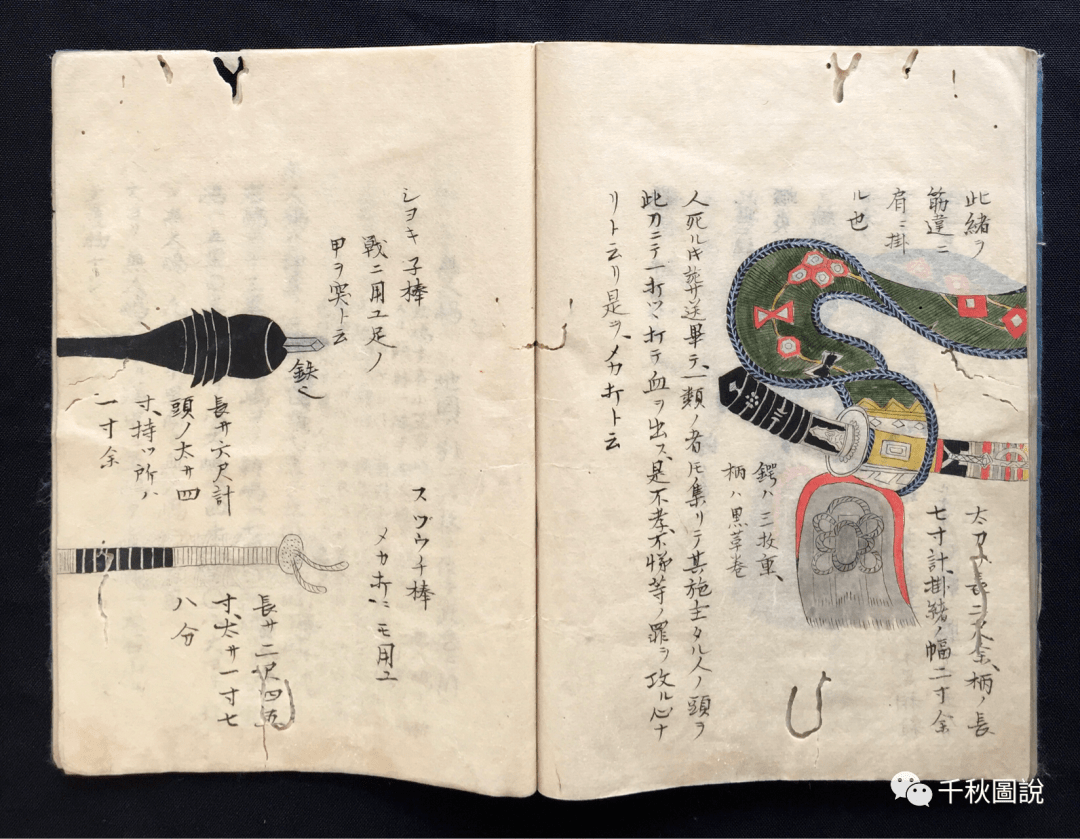 此緒ヲ
筋違ニ
肩ニ掛
ル也
太刀ハ長ニ尺余、柄ノ長
七寸計、掛緒ノ幅二寸余
鍔ハ三枚重、
柄ハ黒革巻
人死ルキ葬送畢テ、一類ノ者圧集リテ其施主タル人ノ頭ヲ
此刀ニテ一打ツヽ打テ血ヲ出ス、是不孝、不悌等ノ罪ヲ攻ル心ナ
リト云リ是ヲ、メカ打ト云
シヨキ子棒
戦ニ用ユ足ノ
甲ヲ突ト云
鉄也
長サ六尺計
頭ノ太サ四
寸、持ツ所ハ
一寸余
スヅウチ棒
メカ打ニモ用ユ
長サ二尺四五
寸、太サ一寸七
八分
千秋圖說